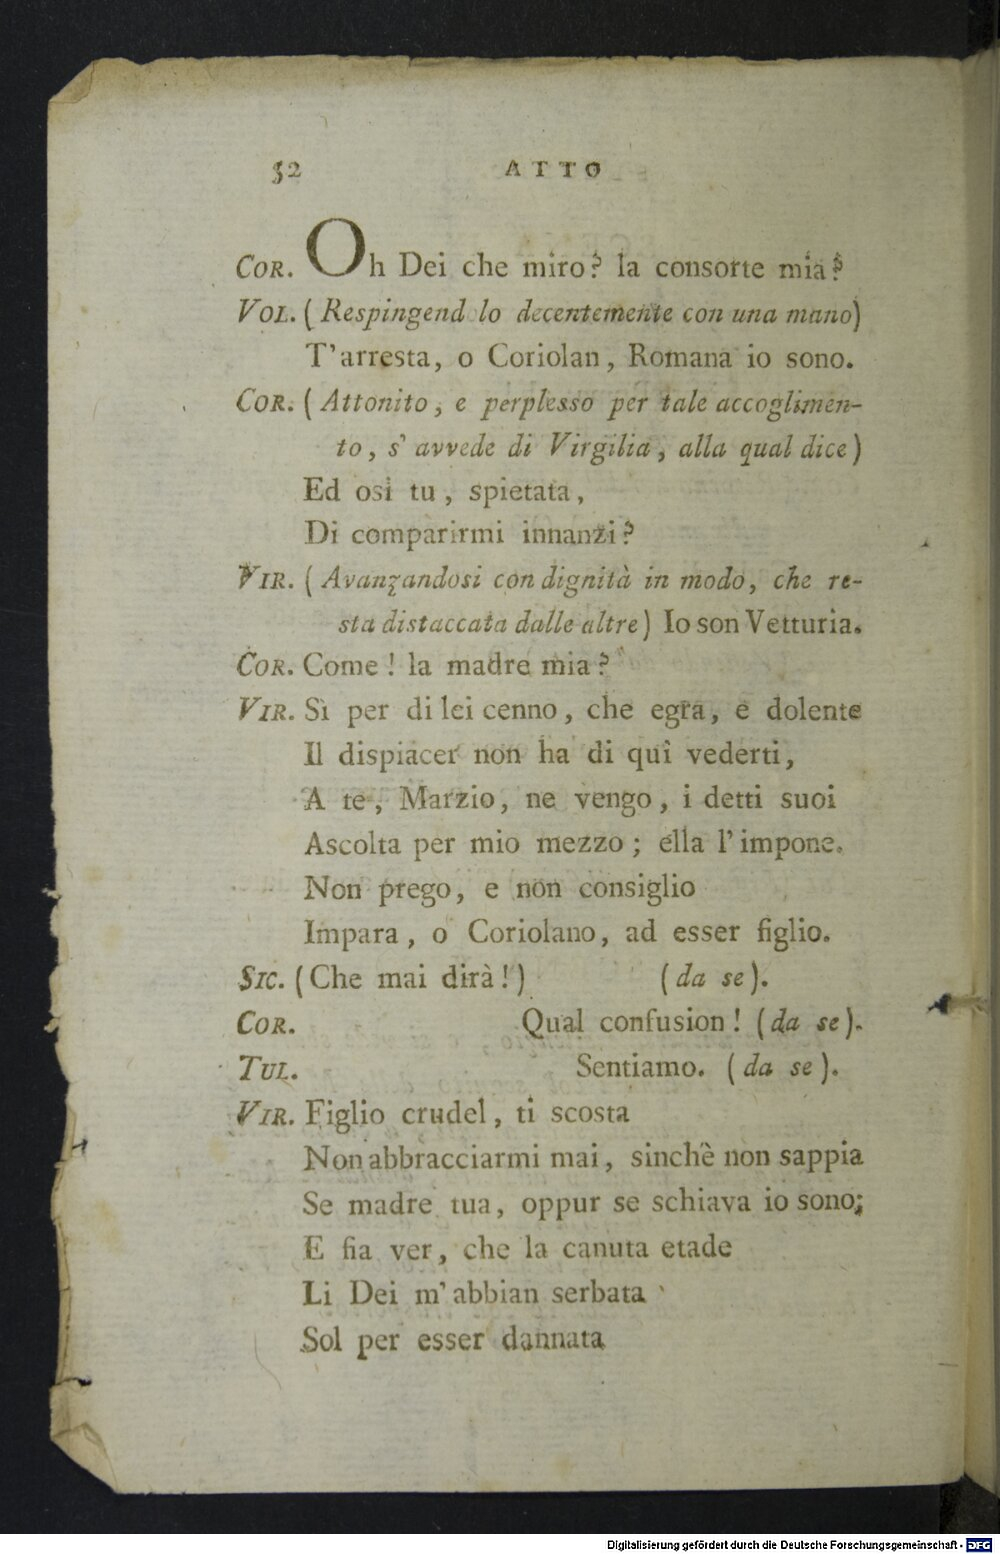 52 ATTO
COR. Oh Dei che miro? la consorte mia?
VOL. (Respingend lo decentemente con una mano)
T'arresta, o Coriolan, Romana io sono.
COR. (Attonito, e perplesso per tale accoglimen-
to, s' avvede di Virgilia, alla qual dice)
Ed osi tu, spietata,
Di comparirmi innanzi?
VIR. (Avanzandosi con dignità in modo, che re-
sta distaccata dalle altre) Io son Vetturia.
COR. Come! la madre mia?
VIR. Sì per di lei cenno, che egra, e dolente
Il dispiacer non ha di quì vederti,
A te, Marzio, ne vengo, i detti suoi
Ascolta per mio mezzo; ella l'impone.
Non prego, e non consiglio
Impara, o Coriolano, ad esser figlio.
SIC. (Che mai dirà!) (da se).
COR. Qual confusion! (da se).
TUL. Sentiamo. (da se).
VIR. Figlio crudel, ti scosta
Non abbracciarmi mai, sinchè non sappia
Se madre tua, oppur se schiava io sono;
E fia ver, che la canuta etade
Li Dei m'abbian serbata
Sol per esser dannata
Digitalisierung gefördert durch die Deutsche Forschungsgemeinschaft - DFG